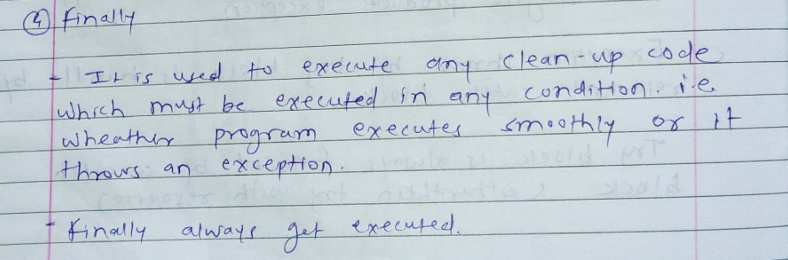 ④ finally
- It is used to execute any clean-up code
which must be executed in any condition. i.e.
wheather program executes smoothly or it
throws an exception.
- finally always get executed.